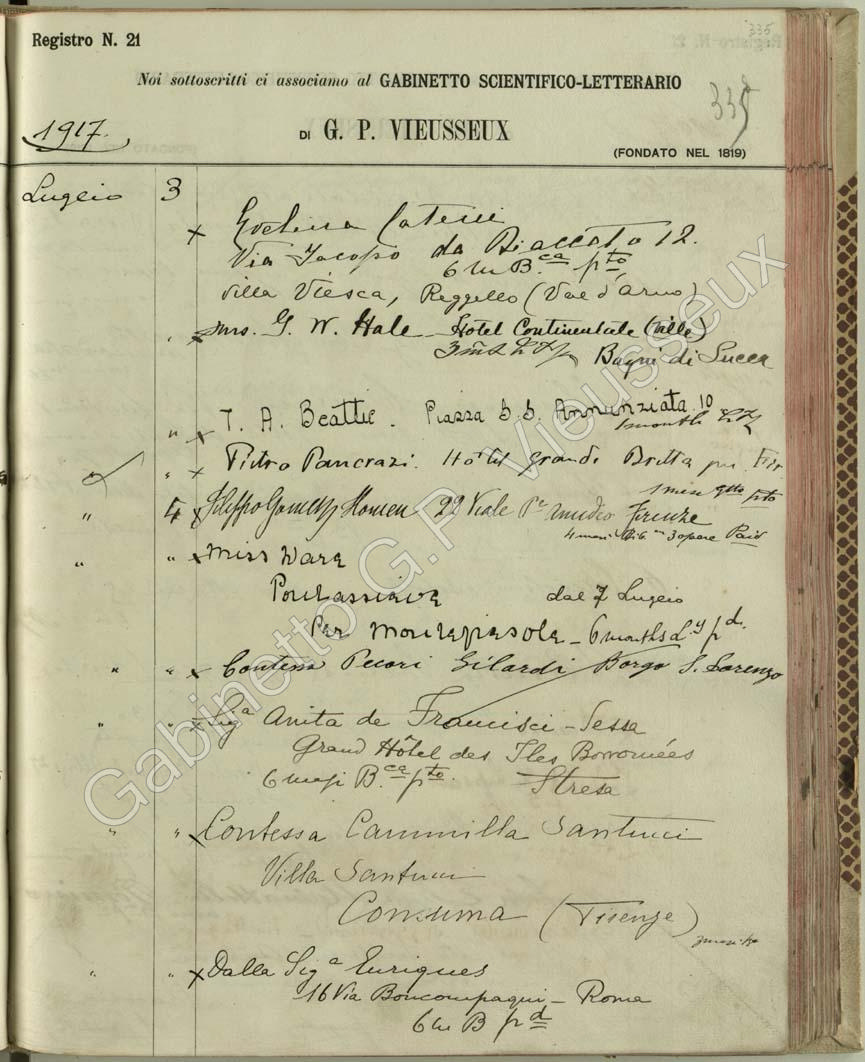 335
Registro N. 21
Noi sottoscritti ci associamo al GABINETTO SCIENTIFICO-LETTERARIO
335
1917.
DI G. P. VIEUSSEUX
(FONDATO NEL 1819)
Luglio 3
x
Via Jacopo da Diacceto 12.
6 m B.ca pto
Villa Viesca, Reggello (Val d'Arno)
" x Mrs. G. W. Hale - Hotel Continentale (Ville)
Bagni di Lucca
" x T. A. Beattie. Piazza S. S. Annunziata 10
1 month
" x Pietro Pancrazi. Hôtel Grande Bretta
1 mese pto
" 4 x Homem 22 Viale Pe Amedeo Firenze
3 opere Paid
" " x Miss Ware
Pontassieve dal 7 Luglio
Per Montefiesole - 6 months L.y pd.
" " x Contessa Pecori Giraldi Borgo S. Lorenzo
" " x Sig.a Anita de Francisci - Sessa
Grand Hôtel des Iles Borromées
6 mesi B.ca pto. Stresa
" " x Contessa Cammilla Santucci
Villa Santucci
Consuma (Firenze)
" " x Dalla Sig.a Enriques
16 Via Boncompagni - Roma
6 m B pd
Gabinetto G.P. Vieusseux